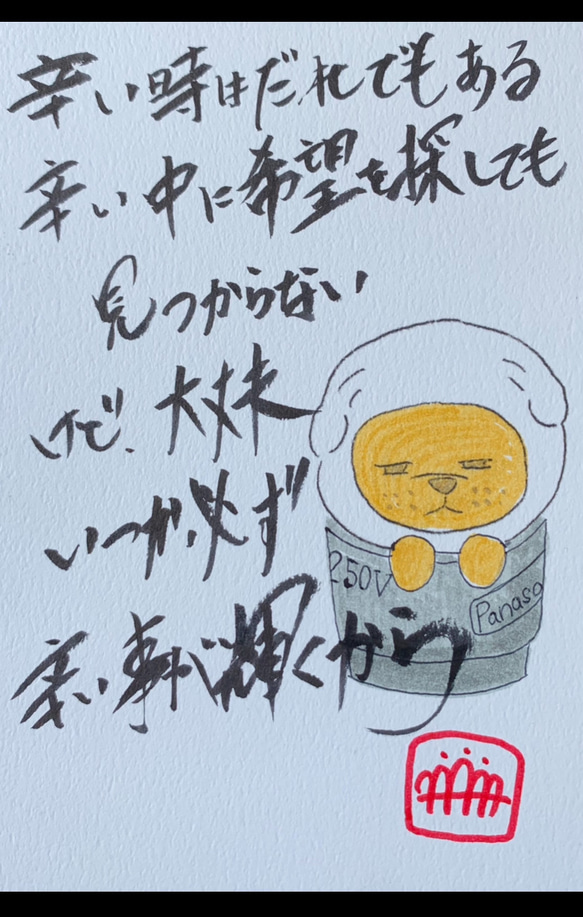 辛い時はだれでもある
辛い中に希望を探しても
見つからない
けど、大丈夫
いつか、必ず
辛い事が輝くから
250V
Panaso